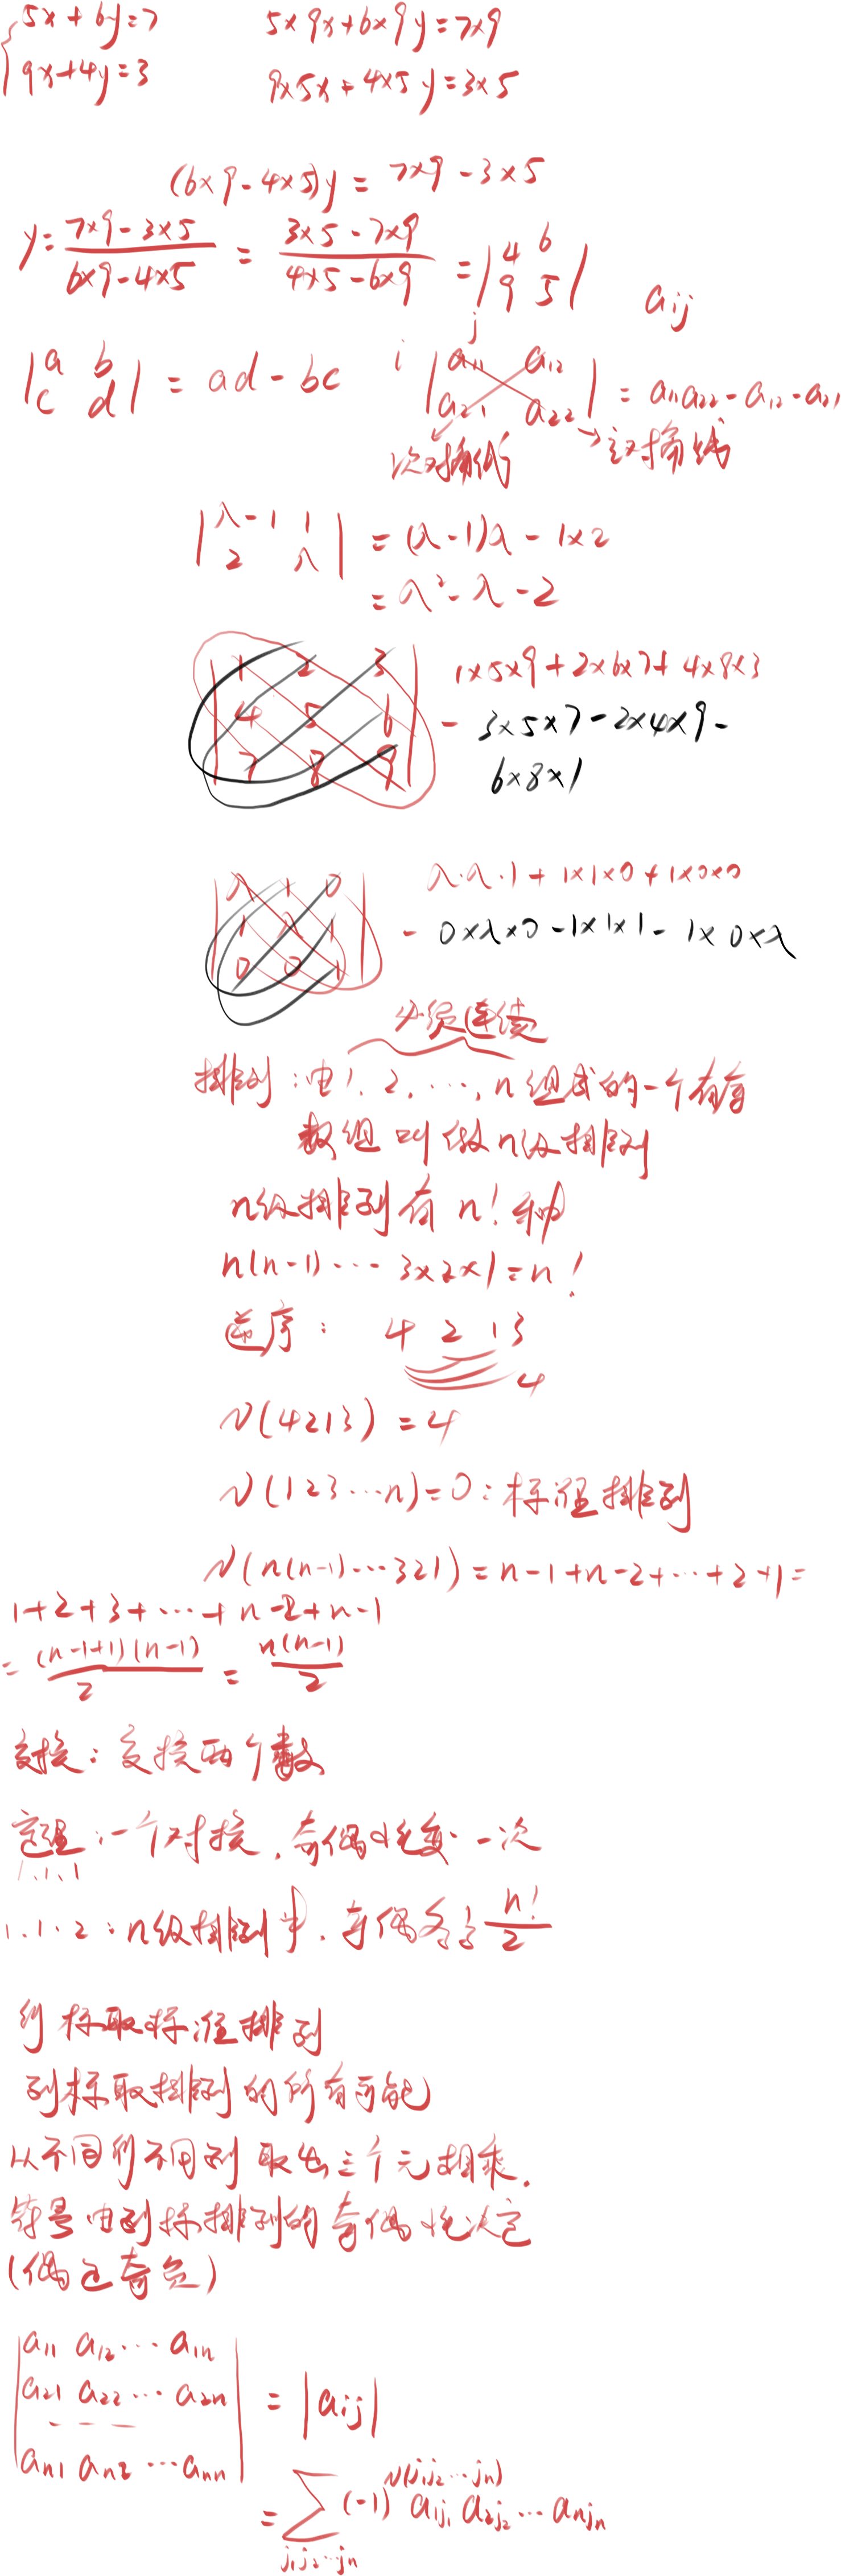 5x+6y=7 5×9x+6×9y=7×9
9x+4y=3 9×5x+4×5y=3×5
(6×9-4×5)y= 7×9-3×5
y= (7×9-3×5)/(6×9-4×5) = (3×5-7×9)/(4×5-6×9) = |4 6
9 5| aij
j
|a b
c d| = ad-bc i |a11 a12
a21 a22| = a11a22-a12-a21
次对角线 主对角线
|λ-1 1
2 λ| = (λ-1)λ-1×2
= λ²-λ-2
|1 2 3
4 5 6
7 8 9| 1×5×9+2×6×7+4×8×3
- 3×5×7-2×4×9-
6×8×1
|λ 1 0
1 λ 1
0 0 1| λ·λ·1+1×1×0+1×0×0
- 0×λ×0-1×1×1-1×0×λ
必须连续
排列:由1,2,…,n组成的一个有序
数组叫做n级排列
n级排列有n!种
n(n-1)…3×2×1=n!
逆序: 4 2 1 3
4
N(4213)=4
N(123…n)=0:标准排列
N(n(n-1)…321)=n-1+n-2+…+2+1=
1+2+3+…+n-2+n-1
= (n-1+1)(n-1)/2 = n(n-1)/2
交换:交换两个数
定理:一个对换,奇偶性变一次
1.1.1
1.1.2:n级排列中,奇偶各占 n!/2
行标取标准排列
列标取排列的所有可能
从不同行不同列取出三个元相乘.
符号由列标排列的奇偶性决定
(偶正奇负)
|a11 a12 … a1n
a21 a22 … a2n
- - -
an1 an2 … ann| = |aij|
= ∑ (-1)^N(j1j2…jn) a1j1 a2j2 … anjn
j1j2…jn